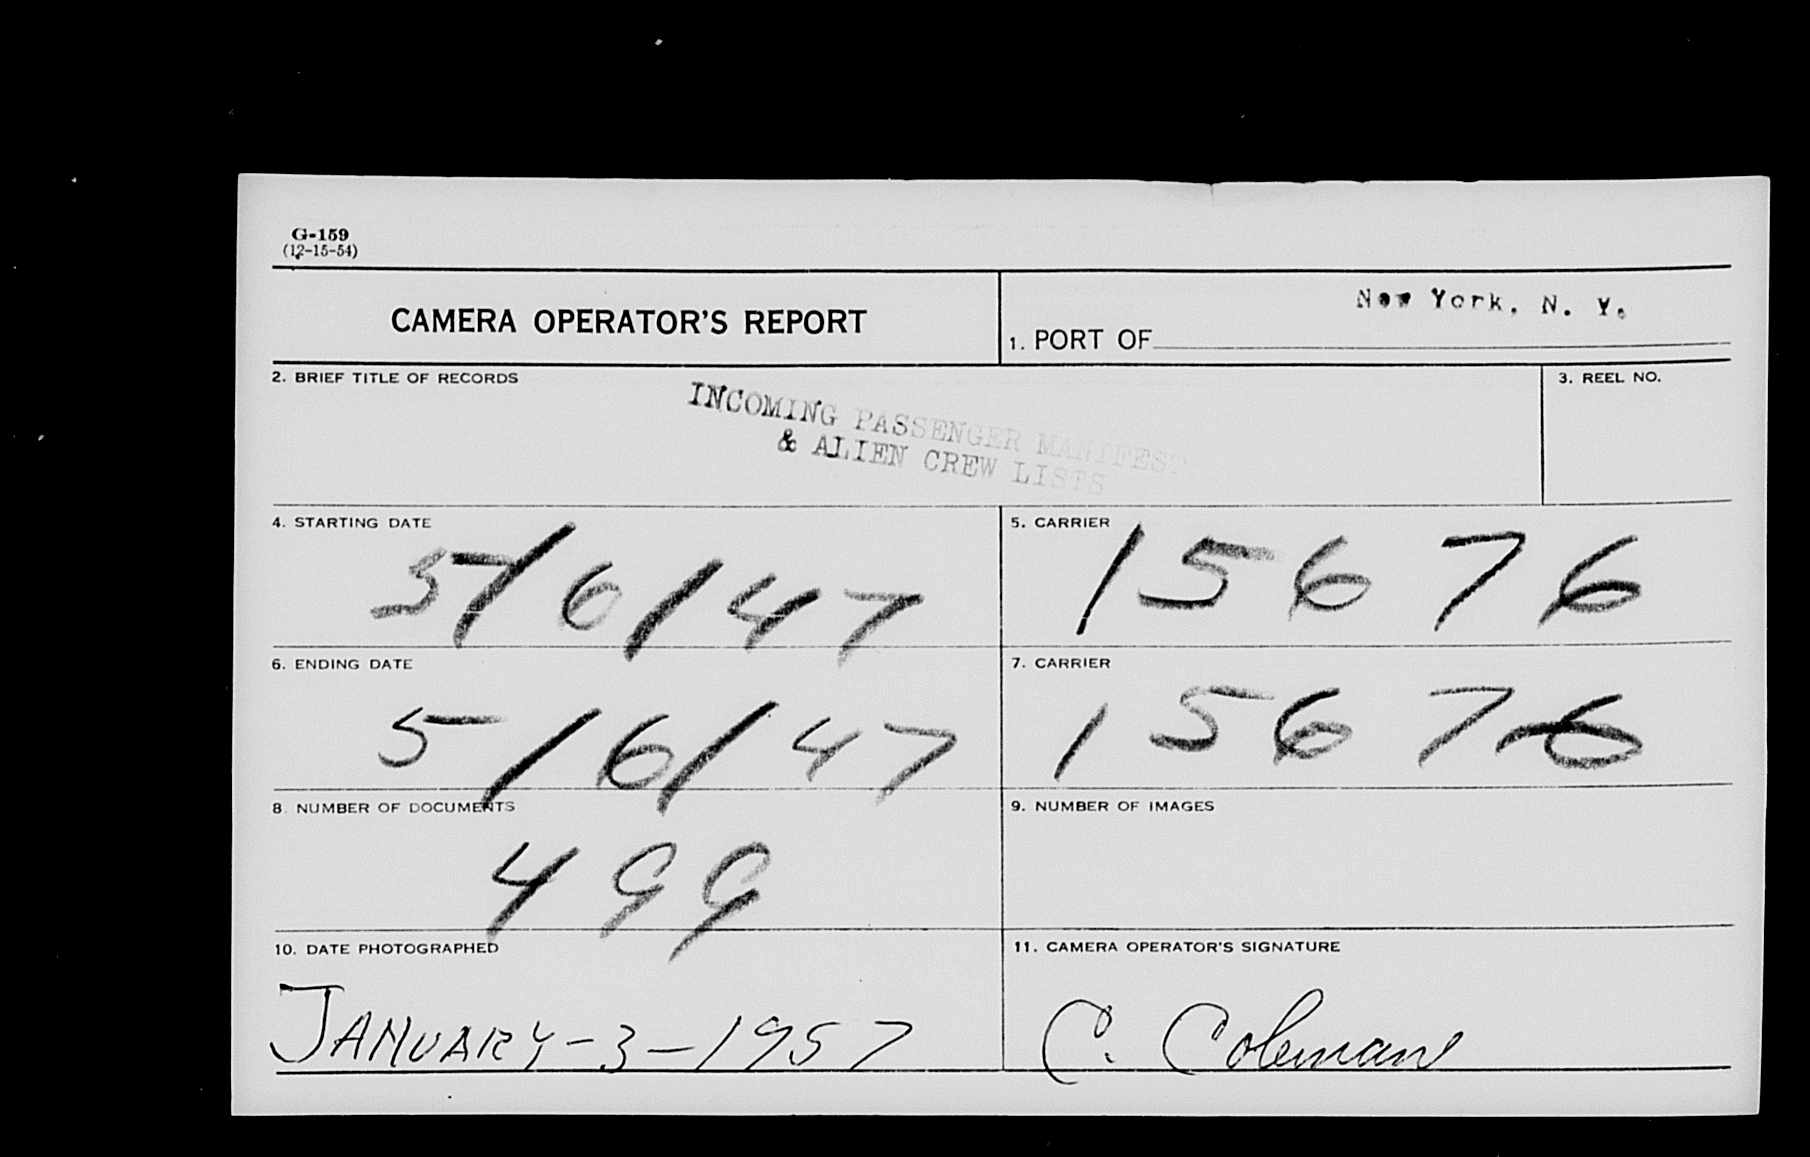 G-159
(12-15-54)
CAMERA OPERATOR'S REPORT
1. PORT OF New York, N. Y.
2. BRIEF TITLE OF RECORDS
INCOMING PASSENGER MANIFEST
& ALIEN CREW LISTS
3. REEL NO.
4. STARTING DATE
5/6/47
5. CARRIER
15676
6. ENDING DATE
5/6/47
7. CARRIER
15676
8. NUMBER OF DOCUMENTS
499
9. NUMBER OF IMAGES
10. DATE PHOTOGRAPHED
JANUARY-3-1957
11. CAMERA OPERATOR'S SIGNATURE
C. Coleman